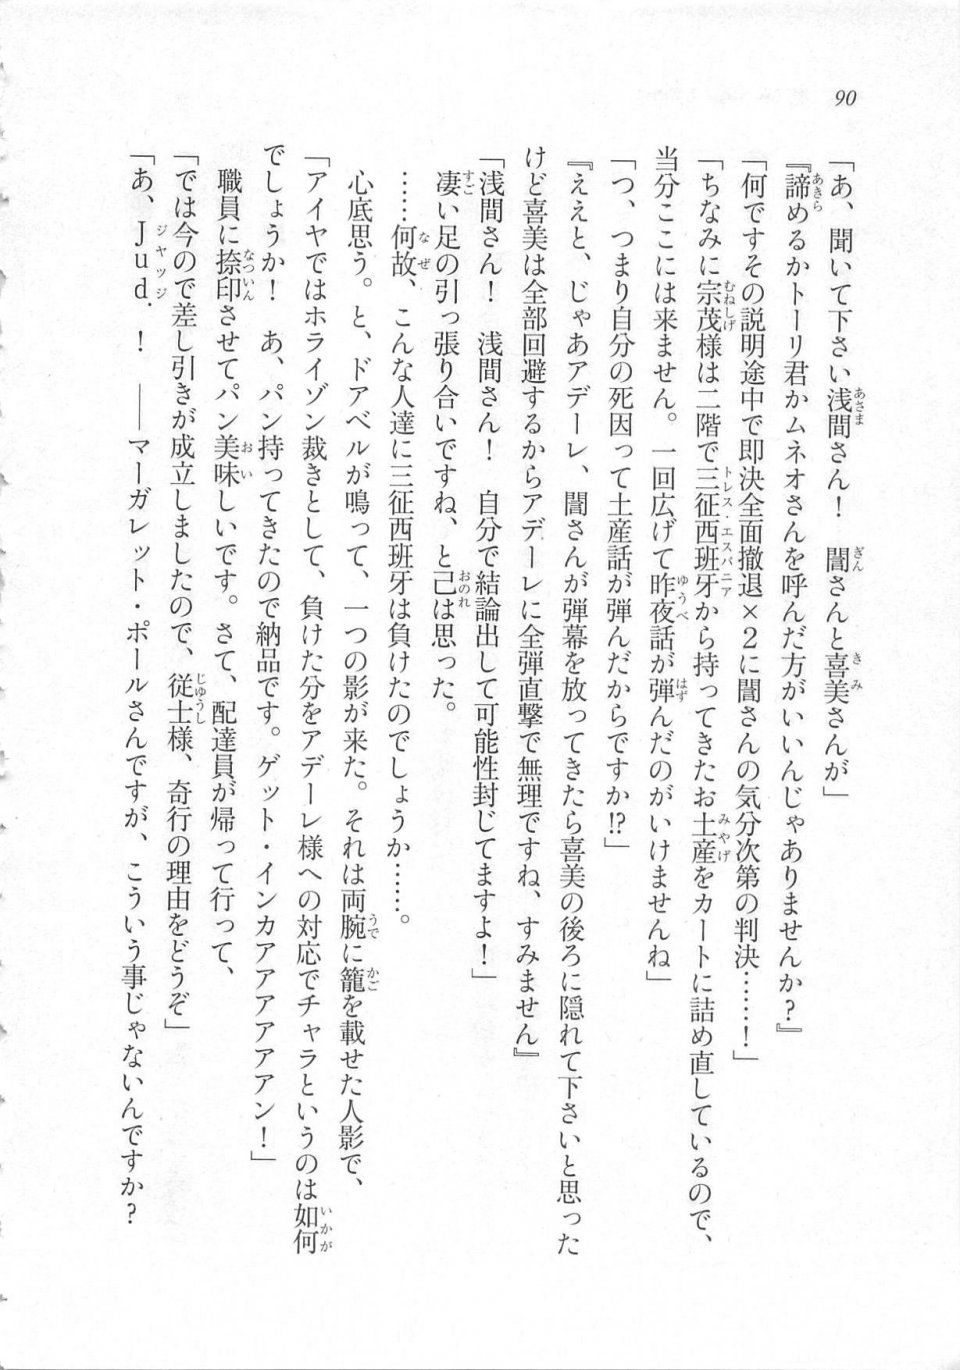 90
「あ、聞いて下さい浅間さん！　誾さんと喜美さんが」
『諦めるかトーリ君かムネオさんを呼んだ方がいいんじゃありませんか？』
「何ですその説明途中で即決全面撤退×２に誾さんの気分次第の判決……！」
「ちなみに宗茂様は二階で三征西班牙から持ってきたお土産をカートに詰め直しているので、
当分ここには来ません。一回広げて昨夜話が弾んだのがいけませんね」
「つ、つまり自分の死因って土産話が弾んだからですか!?」
『ええと、じゃあアデーレ、誾さんが弾幕を放ってきたら喜美の後ろに隠れて下さいと思った
けど喜美は全部回避するからアデーレに全弾直撃で無理ですね、すみません』
「浅間さん！　浅間さん！　自分で結論出して可能性封じてますよ！」
凄い足の引っ張り合いですね、と己は思った。
……何故、こんな人達に三征西班牙は負けたのでしょうか……。
心底思う。と、ドアベルが鳴って、一つの影が来た。それは両腕に籠を載せた人影で、
「アイヤではホライゾン裁きとして、負けた分をアデーレ様への対応でチャラというのは如何
でしょうか！　あ、パン持ってきたので納品です。ゲット・インカアアアアアアン！」
職員に捺印させてパン美味しいです。さて、配達員が帰って行って、
「では今ので差し引きが成立しましたので、従士様、奇行の理由をどうぞ」
「あ、Ｊｕｄ．！　――マーガレット・ポールさんですが、こういう事じゃないんですか？